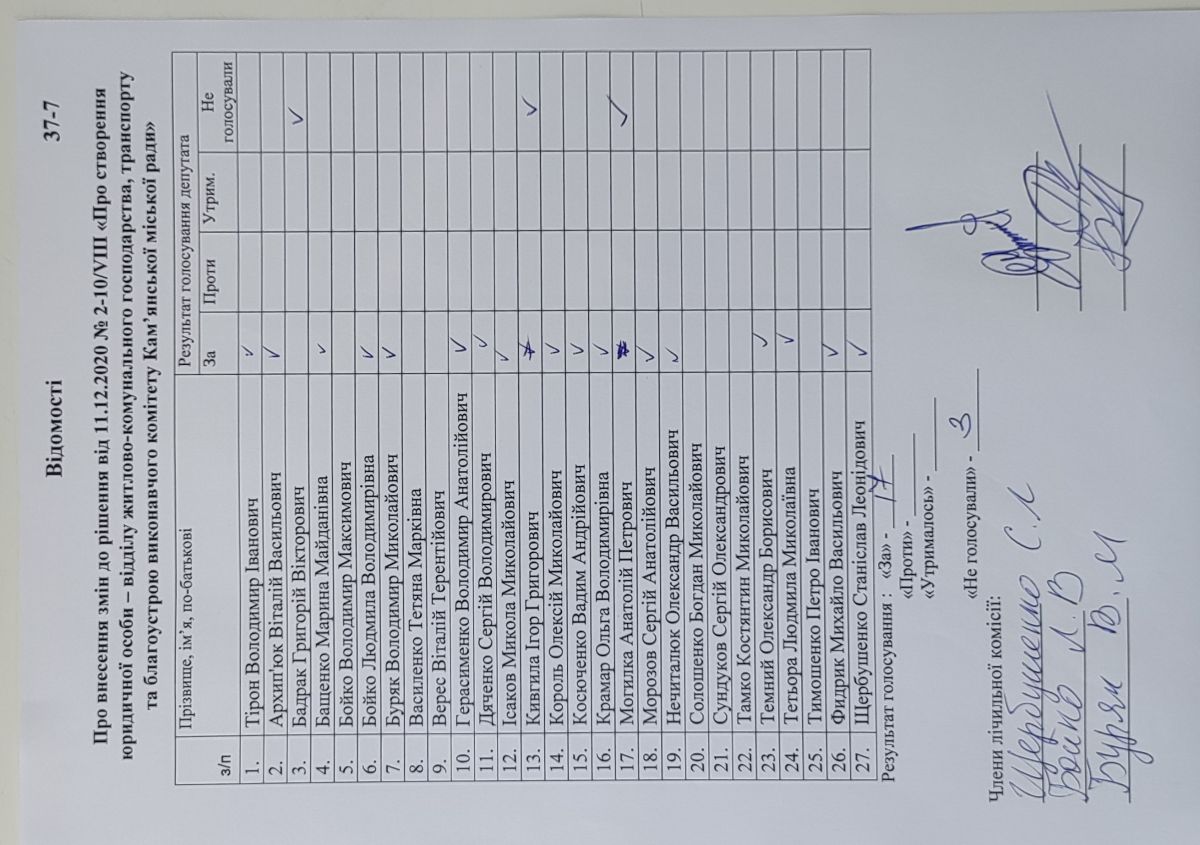 Відомості 37-7
Про внесення змін до рішення від 11.12.2020 № 2-10/VIII «Про створення
юридичної особи – відділу житлово-комунального господарства, транспорту
та благоустрою виконавчого комітету Кам’янської міської ради»
з/п Прізвище, ім’я, по-батькові Результат голосування депутата
За Проти Утрим. Не голосували
1. Тірон Володимир Іванович ✓
2. Архип'юк Віталій Васильович ✓
3. Бадрак Григорій Вікторович ✓
4. Бащенко Марина Майданівна ✓
5. Бойко Володимир Максимович
6. Бойко Людмила Володимирівна ✓
7. Буряк Володимир Миколайович ✓
8. Василенко Тетяна Марківна
9. Верес Віталій Терентійович
10. Герасименко Володимир Анатолійович ✓
11. Дяченко Сергій Володимирович ✓
12. Ісаков Микола Миколайович ✓
13. Кивгила Ігор Григорович ✓
14. Король Олексій Миколайович ✓
15. Косюченко Вадим Андрійович ✓
16. Крамар Ольга Володимирівна ✓
17. Могилка Анатолій Петрович ✓
18. Морозов Сергій Анатолійович ✓
19. Нечиталюк Олександр Васильович ✓
20. Солошенко Богдан Миколайович
21. Сундуков Сергій Олександрович
22. Тамко Костянтин Миколайович
23. Темний Олександр Борисович ✓
24. Тетьора Людмила Миколаївна ✓
25. Тимошенко Петро Іванович
26. Фидрик Михайло Васильович ✓
27. Щербушенко Станіслав Леонідович ✓
Результат голосування : «За» - 17
«Проти» -
«Утрималось» -
«Не голосували» - 3
Члени лічильної комісії:
Щербушенко С.Л
Бойко Л.В
Буряк В.М